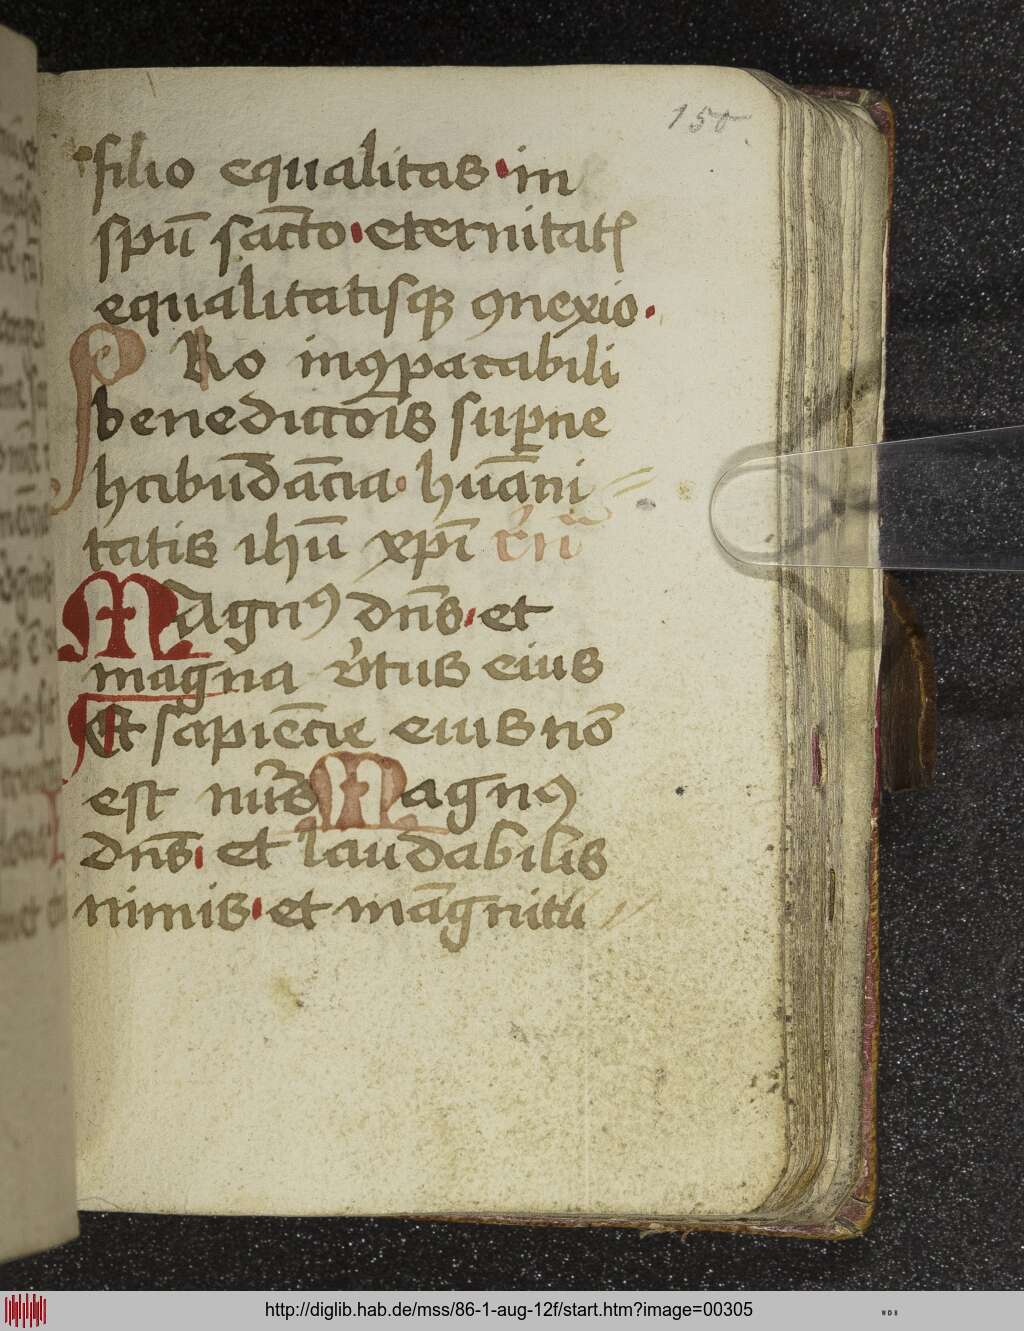 150
filio equalitas · in
spū sācto · eternitatꝭ
equalitatisqꝫ ꝯnexio ·
PRo inꝯpatabili
benedictōis suꝑne
habūdācia · huāni
tatis ihū xpī
MAgnꝰ dns̄ · et
magna tus eius
Et sapiēcie eius nō
est Magnꝰ
dns̄ · et laudabilis
nimis · et māgnitu
http://diglib.hab.de/mss/86-1-aug-12f/start.htm?image=00305